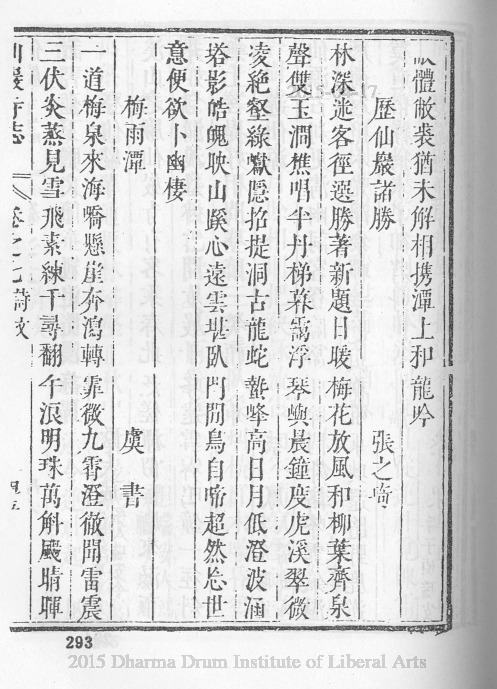 體敝裘猶未解相携潭上和龍吟
歷仙巖諸勝 張之
林深迷客徑選勝著新題日暖梅花放風和柳葉齊泉
聲雙玉澗樵唱半丹梯暮靄浮琴嶼晨鐘度虎溪翠微
凌絶壑綠巘隱招提洞古龍蛇蟄峰高日月低澄波涵
塔影皓魄映山蹊心遠雲堪臥門閒鳥自啼超然忘世
意便欲卜幽棲
梅雨潭 虞書
一道梅泉來海嶠懸崖奔瀉轉霏微九霄澄徹聞雷震
三伏炎蒸見雪飛素練千尋翻午浪明珠萬斛颺晴暉
仙巖寺志 卷之七詩文
293
2015 Dharma Drum Institute of Liberal Arts